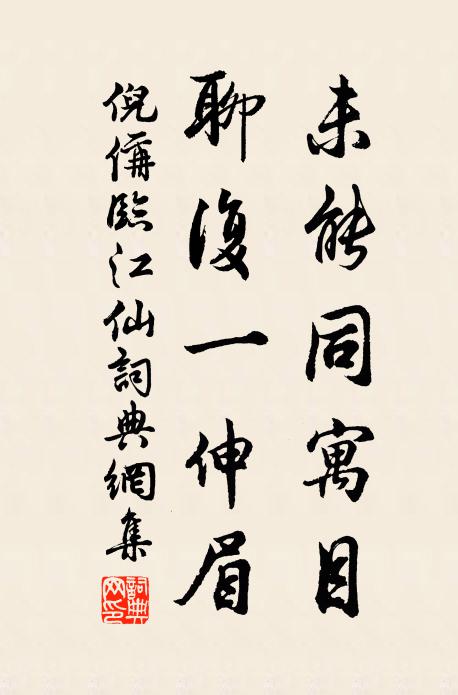 未能同寓目
聊復一伸眉
倪偁臨江仙詞典網集
詞典网印